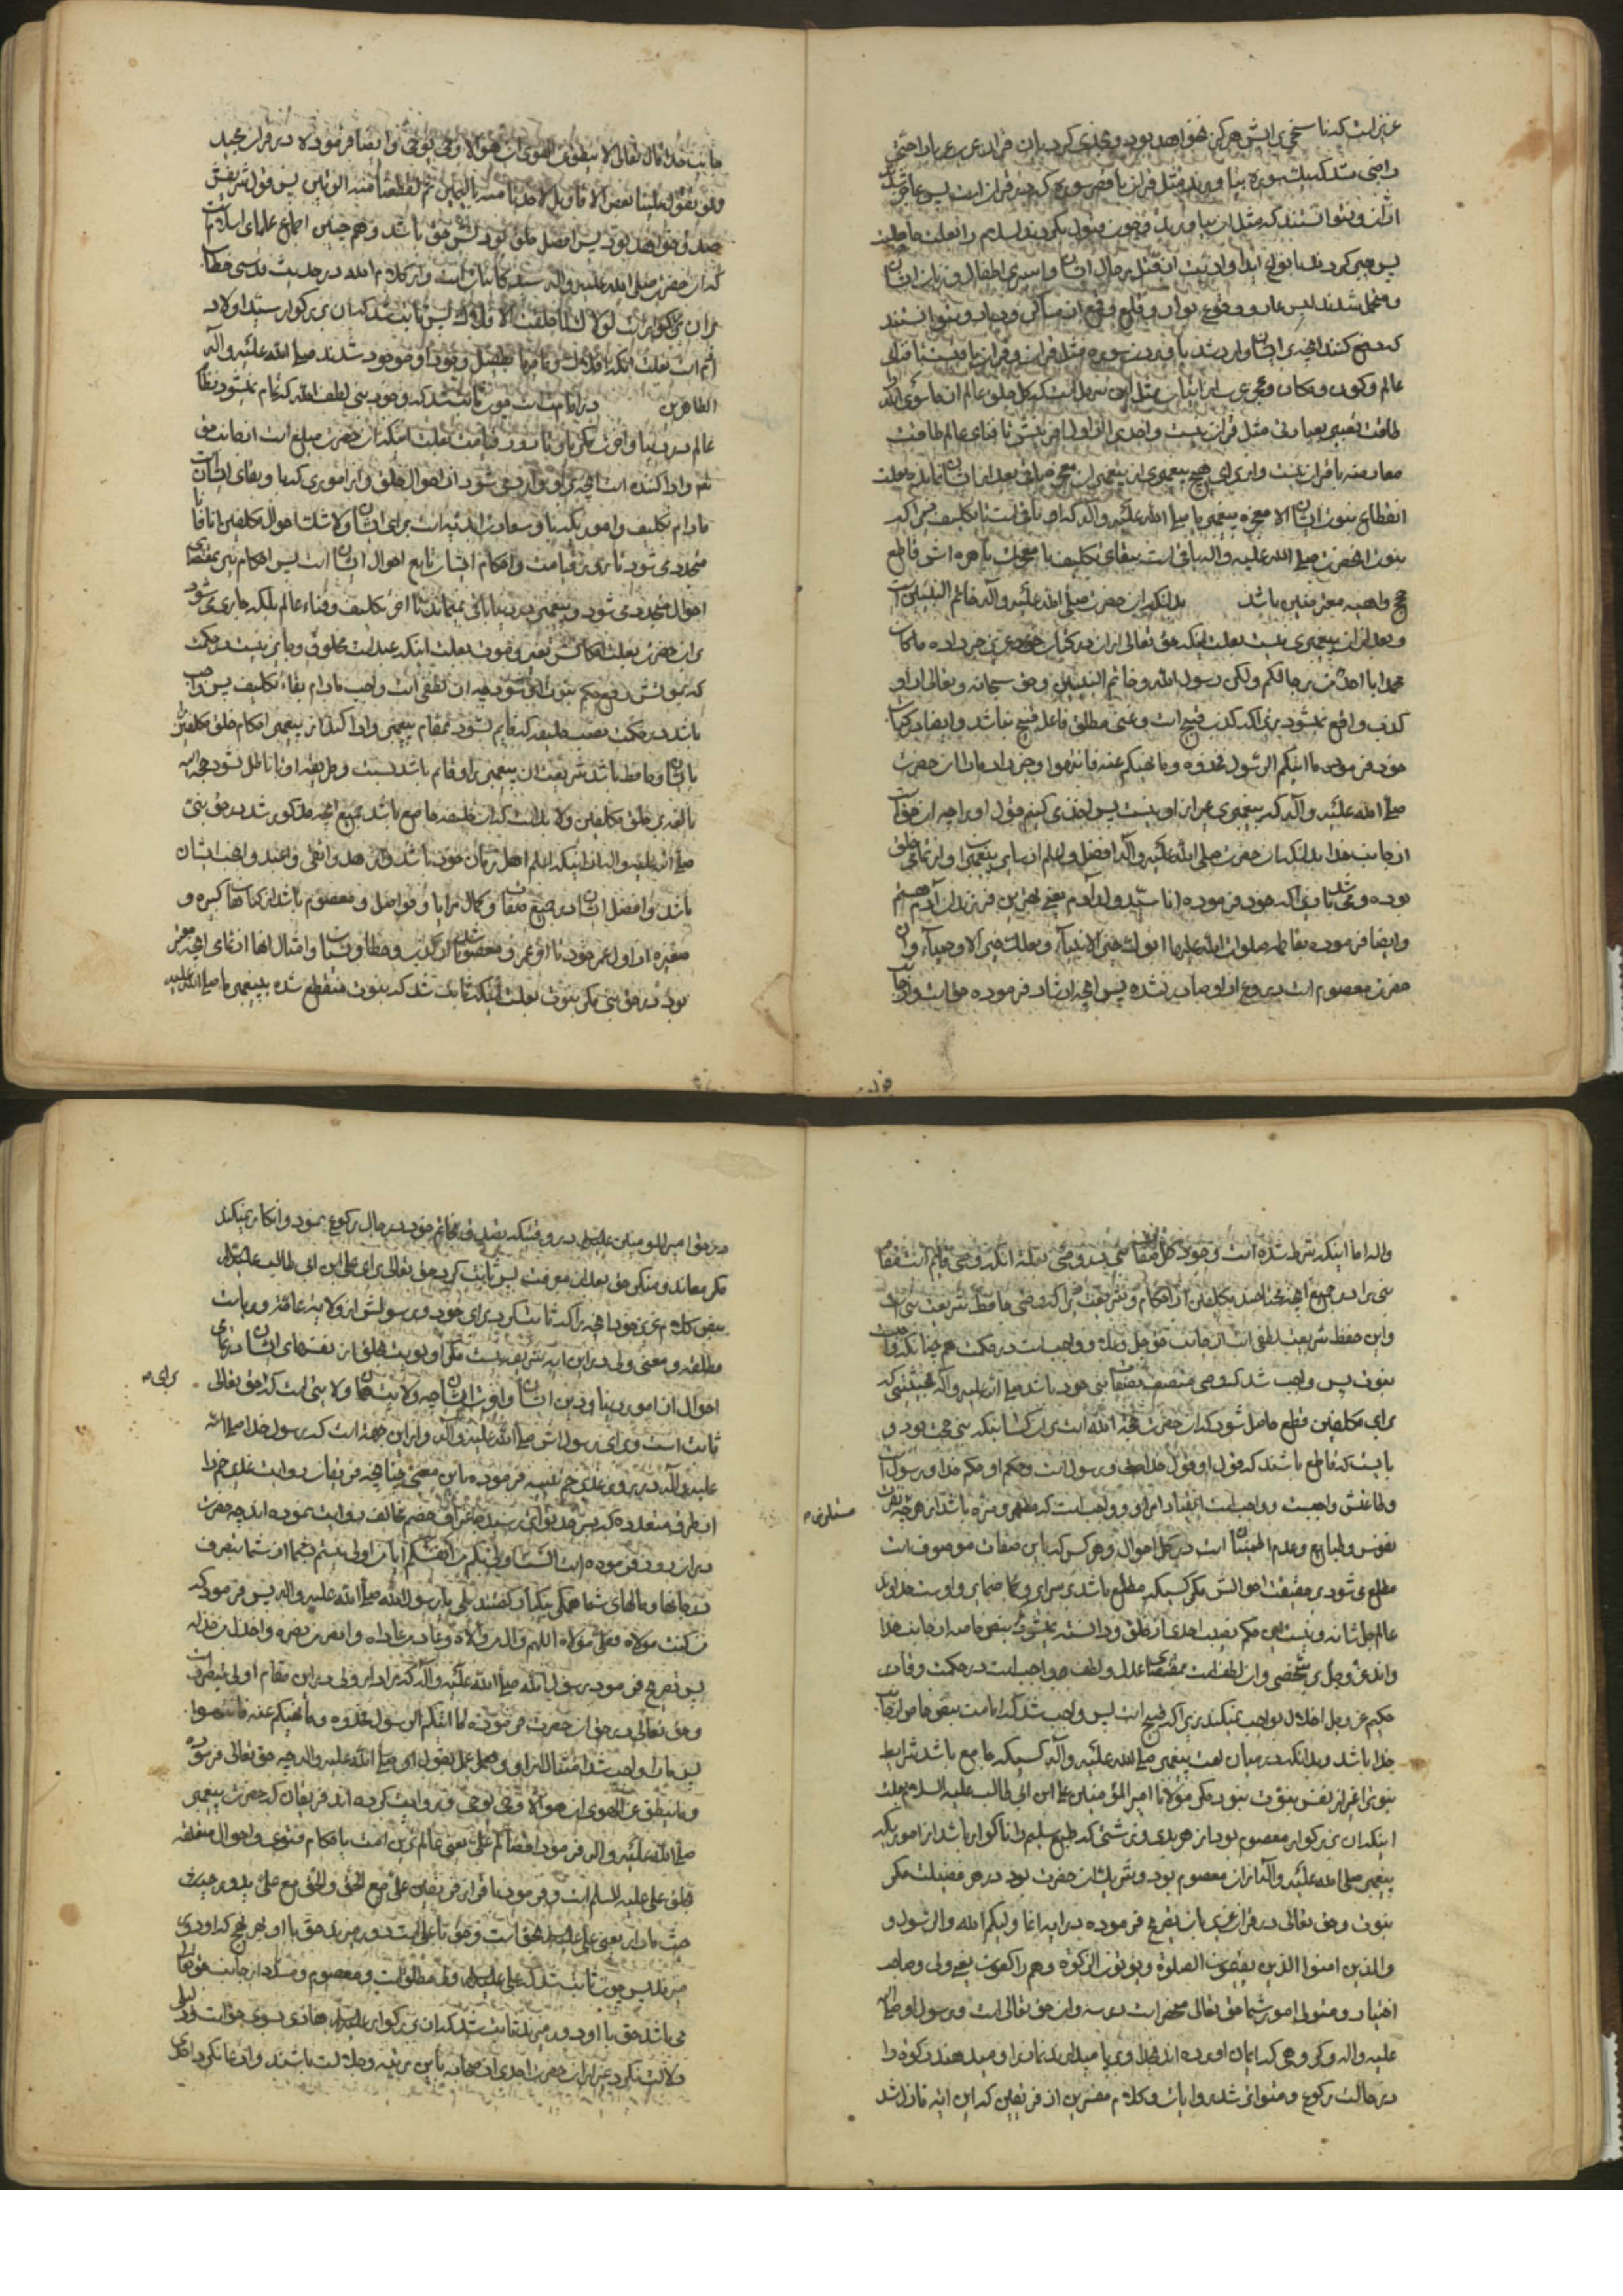 عزیز است که ناسخی برایش هرگز نخواهد بود و تحدی کرد بآن قرآن عرب عرباء را حتی
راضی شد که بیک سوره بیاورند مثل قرآن یا قصر سوره که در قرآن است پس عاجز شدند
از آن و نتوانستند که مثل آن بیاورند و چون قبول نکردند اسلام را بعلت
پس صبر کردند بانواع ایذا و اذیت از قتل رجال ایشان و اسیری اطفال و زنان ایشان
و متحمل شدند لیس عار و وقوع بوار و قلع و قمع از مساکن و دیار و نتوانستند
که دفع کنند آنچه بر ایشان وارد شد بآوردن سوره مثل قرآن و قرآن باقیست تا فنای
عالم و کون و مکان و عجز عرب از اتیان بمثل این سر دالست که کل خلق عالم از ماسوی الله
طاقت نصیری بعبارتی مثل قرآن نیست و احدی از اول آفرینش تا فنای عالم طاقت
معارضه با قرآن نیست و از برای هیچ پیغمبری از پیغمبران معجزه باقی بعد از ایشان نمانده بعلت
انقطاع نبوت ایشان الا معجزه پیغمبر ما صلی الله علیه و آله که آن باقی است تا تکلیف زیرا که
نبوت آنحضرت صلی الله علیه و آله باقی است ببقای تکلیف با معجزات باهره اش قاطع
حج واهیه معترضین باشد بدانکه آن حضرت صلی الله علیه و آله خاتم النبیین است
و بعد از آن پیغمبری نیست بعلت اینکه حق تعالی از آن در کتاب خود عزیز خبر داده ما کان
محمد ابا احد من رجالکم ولکن رسول الله و خاتم النبیین و حق سبحانه و تعالی از او
کذب واقع نمیشود زیرا که کذب قبیح است و غنی مطلق فاعل قبیح نباشد و ایضا در کتاب
خود فرموده ما اتیکم الرسول فخذوه و ما نهیکم عنه فانتهوا و خبر داد ما را آن حضرت
صلی الله علیه و آله که پیغمبری غیر از او نیست پس اخذ می کنیم قول او را چه آن حق است
از جانب خدا بدانکه آن حضرت صلی الله علیه و آله افضل و اعلم از سایر پیغمبران و از تمامی خلق
بوده و می باشد زیرا که خود فرموده انا سید ولد آدم یعنی بهترین فرزندان آدم هستم
و ایضا فرموده بفاطمه صلوات الله علیها ابوک خیر الانبیاء و بعلک خیر الاوصیاء و آن
حضرت معصوم است دروغ از او صادر نشده پس آنچه ارشاد فرموده حق است و از جانب
جانب خدا قال تعالی لا ینطق عن الهوی ان هو الا وحی یوحی و ایضا فرموده در قرآن مجید
ولو تقول علینا بعض الاقاویل لاخذنا منه بالیمین ثم لقطعنا منه الوتین پس قول شریفش
صدق خواهد بود پس افضل خلق بودنش حق باشد و هم چنین اجماع علمای اسلام است
که آن حضرت صلی الله علیه و آله سید کائنات است و از کلام الله در حدیث قدسی خطاب
بآن بزرگوار است لولاک لما خلقت الافلاک پس ثابت شد که آن بزرگوار سید اولاد
آدم است بعلت آنکه افلاک و ما فیها بطفیل وجود او موجود شدند صلی الله علیه و آله
الطاهرین در امامت است چون ثابت شد که وجود نبی لطف است که تمام نمیشود نظام
عالم در دنیا و آخرت مگر باو تا روز قیامت بعلت اینکه آن حضرت مبلغ است از جانب حق
و ادا کننده است آنچه بر او وارد می شود از احوال خلق و از اموری که بها و بقای ایشان است
مادام تکلیف و امور دنیا و سعادت ابدیه است برای ایشان و لا شک احوال مکلفین آنا فآنا
متجدد می شود تا روز قیامت و احکام ایشان تابع احوال ایشان است پس احکام نیز بمقتضای
احوال متجدد می شود و پیغمبر در دنیا باقی نمیماند تا آخر تکلیف و فناء عالم بلکه جاری می شود
بر آن حضرت بعلت احکام بشریت تغیر و موت بعلت اینکه عبد است مخلوق و جایز نیست در حکمت
که بموتش رفع حکم نبوت او شود چه آن لطفی است واجب مادام بقاء تکلیف پس واجب
باشد در حکمت نصب خلیفه که قایم شود بمقام پیغمبر و ادا کند از پیغمبر احکام خلق مکلفین را
بایشان و حافظ باشد شریعت آن پیغمبر را و قائم باشد بسنت و طریقه او تا باطل نشود حجة الله
بالغه بر خلق مکلفین و لابد است که آن خلیفه جامع باشد جمیع آنچه مذکور شد در حق نبی
صلی الله علیه و آله از اینکه اعلم اهل زمان خود باشد و ازهد و اتقی و اعبد و انجب ایشان
باشد و افضل ایشان در جمیع صفات و کمال مزایا و فواضل و معصوم باشد از گناهان کبیره و
صغیره از اول عمر خود تا آخر عمر و معصوم باشد از کذب و خطا و نسیان و امثال اینها از تمامی آنچه معتبر
بود در حق نبی مگر نبوت بعلت اینکه ثابت شد که نبوت منقطع شده بپیغمبر ما صلی الله علیه
و آله اما اینکه شرط شده است وجود کل صفات نبی در وصی بعلة آنکه وصی قایم است مقام
نبی را در جمیع آنچه محتاجند مکلفین از احکام و شریعت زیرا که وصی حافظ شریعت نبی است
و این حفظ شریعت لطفی است از جانب حق جل و علا و واجب است در حکمت هم چنانکه واجبست
نبوت پس واجب شد که وصی متصف بصفات نبی خود باشد صلی الله علیه و آله بحیثیتی که
برای مکلفین قطع حاصل شود که آن حضرت حجة الله است بر ایشان چنانکه نبی حجت بود و
بایست که قاطع باشند که قول او قول خدا و رسول است و حکم او حکم خدا و رسول است
و طاعتش واجبست و واجب است انقیاد امر او و واجب است که مطهر و منزه باشد از هر چه نفرت
نفوس و طبایع و عدم اطمینان است در کل احوال و هر کس که باین صفات موصوف است
مطلع نمی شود بر حقیقت احوالش مگر کسیکه مطلع باشد بر سرایر و ما فی ضمایر و اوست خداوند
عالم جل شانه و نیست این حکم بنصب احدی از خلق و دانسته نمیشود مگر بنص خاصه از جانب خدا
وند عز و جل بر شخصی و آن لطف است بمقتضای عدل و لطف خود واجب است در حکمت و قادر
حکیم عز و جل اخلال بواجب نمیکند زیرا که قبیح است پس واجب شد که امامت بنص خاص از جانب
خدا باشد و بدانکه در میان امت پیغمبر صلی الله علیه و آله کسیکه جامع باشد شرایط
نبوت را غیر از نفس نبوت نبود مگر مولانا امیر المؤمنین علی ابن ابی طالب علیه السلام بعلت
اینکه آن بزرگوار معصوم بود از هر بدی و زشتی که طبع سلیم را ناگوار باشد از امور یکه
پیغمبر صلی الله علیه و آله از آن معصوم بود و شریک آن حضرت بود در هر فضیلت مگر
نبوت و حق تعالی در قرآن عزیز بآن تصریح فرموده در آیه انما ولیکم الله و الرسول و
والذین امنوا الذین یقیمون الصلوة و یؤتون الزکوة و هم راکعون یعنی ولی و صاحب
اختیار و متولی امور شما حق تعالی منحصر است در سه و آن حق تعالی است و رسول او صلی الله
علیه و اله و گروهی که ایمان آورده اند بخدا و برپا میدارند نماز را و میدهند زکوة را
در حالت رکوع و متواتر شد روایات و کلام مفسرین از فریقین که این آیه نازل شد
مستلزم
در حق امیر المومنین علیه السلام در وقتیکه تصدق بخاتم خود در حال رکوع نمود و انکار نمیکند
مگر معاند و منکر حق بعد از معرفت پس ثابت کرد حق تعالی برای علی ابن ابی طالب علیه السلام
بنص کلام عزیز خود آنچه را که ثابت کرد برای خود و رسولش از ولایة عامه و ریاست
مطلقه و معنی ولی در این آیه شریفه نیست مگر اولویت خلق از نفسهای ایشان در تمامی
احوال از امور دنیا و دین ایشان و آخرت ایشان چه ولایت همان ولایتی است که از حق تعالی
برای
ثابت است و برای رسولش صلی الله علیه و آله و از این جهة است که رسول خدا صلی الله
علیه و آله در روز غدیر خم تنبیه فرموده باین معنی چنانچه فریقان روایت غدیر خم را
از طرق متعدده که بسر حد تواتر رسیده حتی خصم مخالف روایت نموده اند چه حضرت
در آن روز فرموده است الست اولی بکم من انفسکم آیا من اولی نیستم بشما از شما بتصرف
در جانها و مالهای شما همگی بیکبار گفتند بلی یا رسول الله صلی الله علیه و اله پس فرمود که
من کنت مولاه فعلی مولاه اللهم وال من والاه و عاد من عاداه و انصر من نصره و اخذل من خذله
پس تصریح فرمود رسول الله صلی الله علیه و آله که مراد از ولی در این مقام اولی بتصرف است
و حق تعالی در حق آن حضرت فرموده ما اتیکم الرسول فخذوه و ما نهیکم عنه فانتهوا
پس ما را واجب شد امتثال امر او و عمل بقول او صلی الله علیه و اله چه حق تعالی فرموده
و ما ینطق عن الهوی ان هو الا وحی یوحی و روایت کرده اند فریقان که حضرت پیغمبر
صلی الله علیه و اله فرمود اقضاکم علی یعنی عالم ترین امت باحکام فتوی و احوال متعلقه
بخلق علی علیه السلم است و فرمود بنا قرار فریقین علی مع الحق و الحق مع علی یدور حیث
حیث ما دار یعنی علی علیه السلام بحق است و حق با علی است دور میزند حق با او بهر نحو که او دور
میزند پس چون ثابت شد که علی علیه السلام ولی مطلق است و معصوم و مسدد از جانب حق تعالی
می باشد حق با او دور میزند ثابت شد که آن بزرگوار علیه السلام هادی بسوی حق است و دلیل
دلالت نکرد غیر از آن حضرت احدی از صحابه باین مرتبه و جلالت باشند و ادعا نکرد احدی